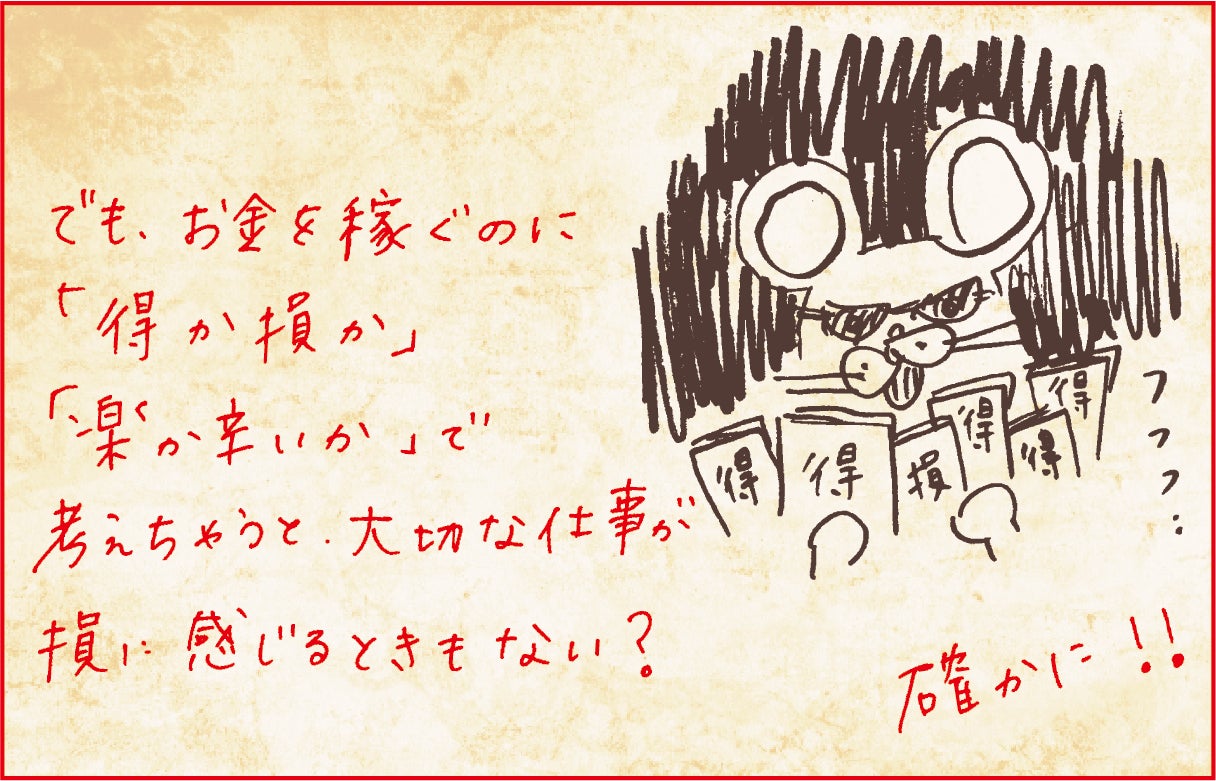 でも、お金を稼ぐのに
「得か損か」
「楽か辛いか」で
考えちゃうと、大切な仕事が
損に感じるときもない？
得
得
損
得
得
得
フフフ…
確かに!!